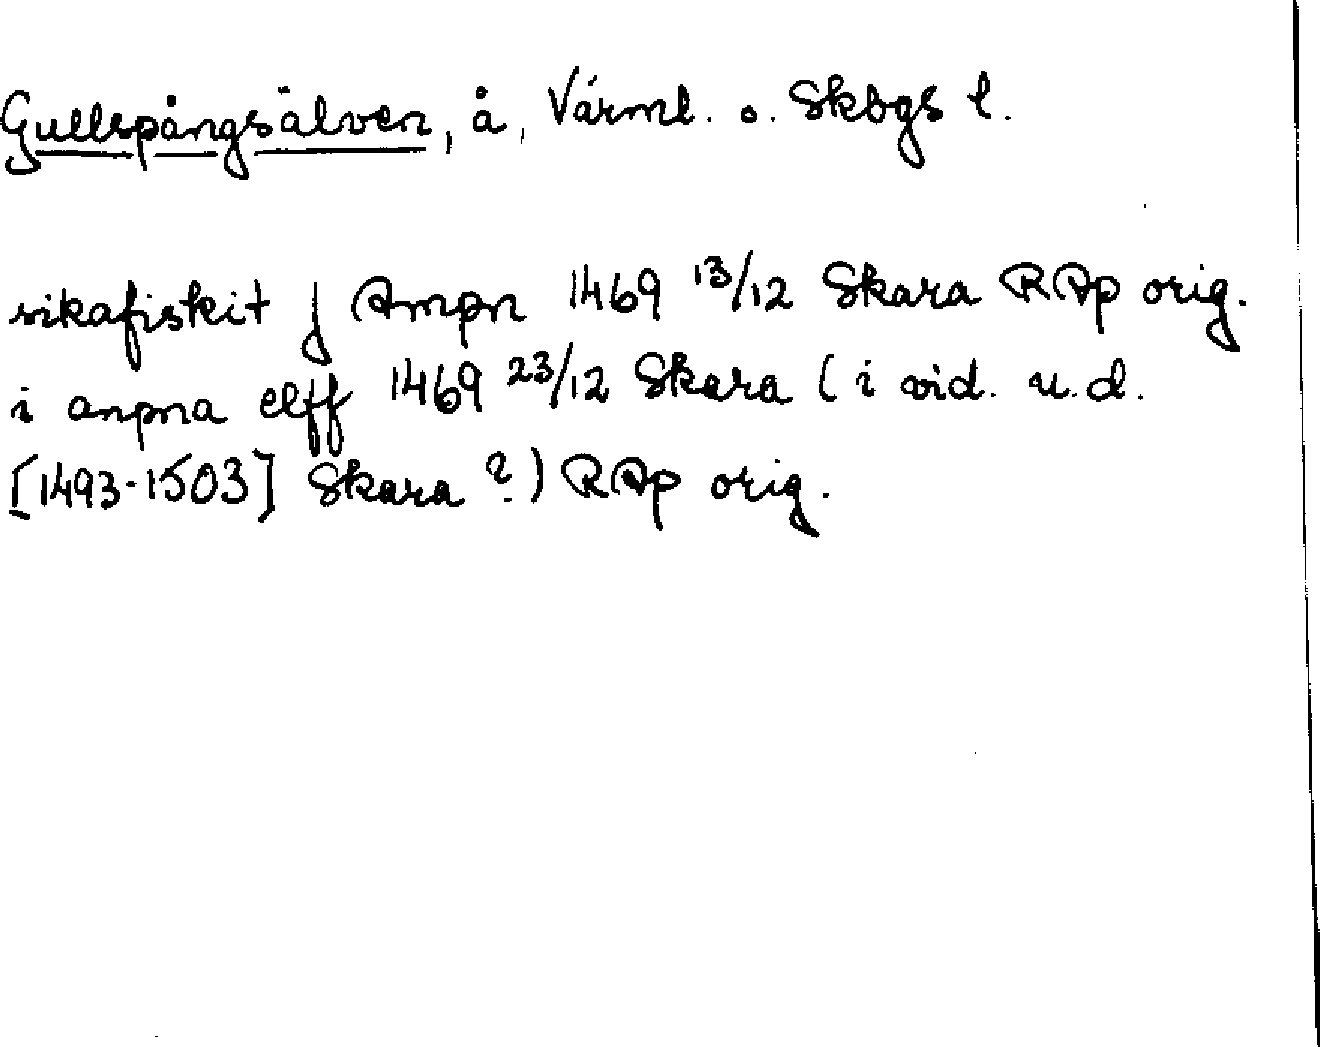 Gullspångsälven, å, Värml. o. Skogs l.
sikafiskit j Ampn 1469 13/12 Skara RAp orig.
i anpna elff 1469 23/12 Skara (i vid. u.d.
[1493-1503] Skara ?) RAp orig.